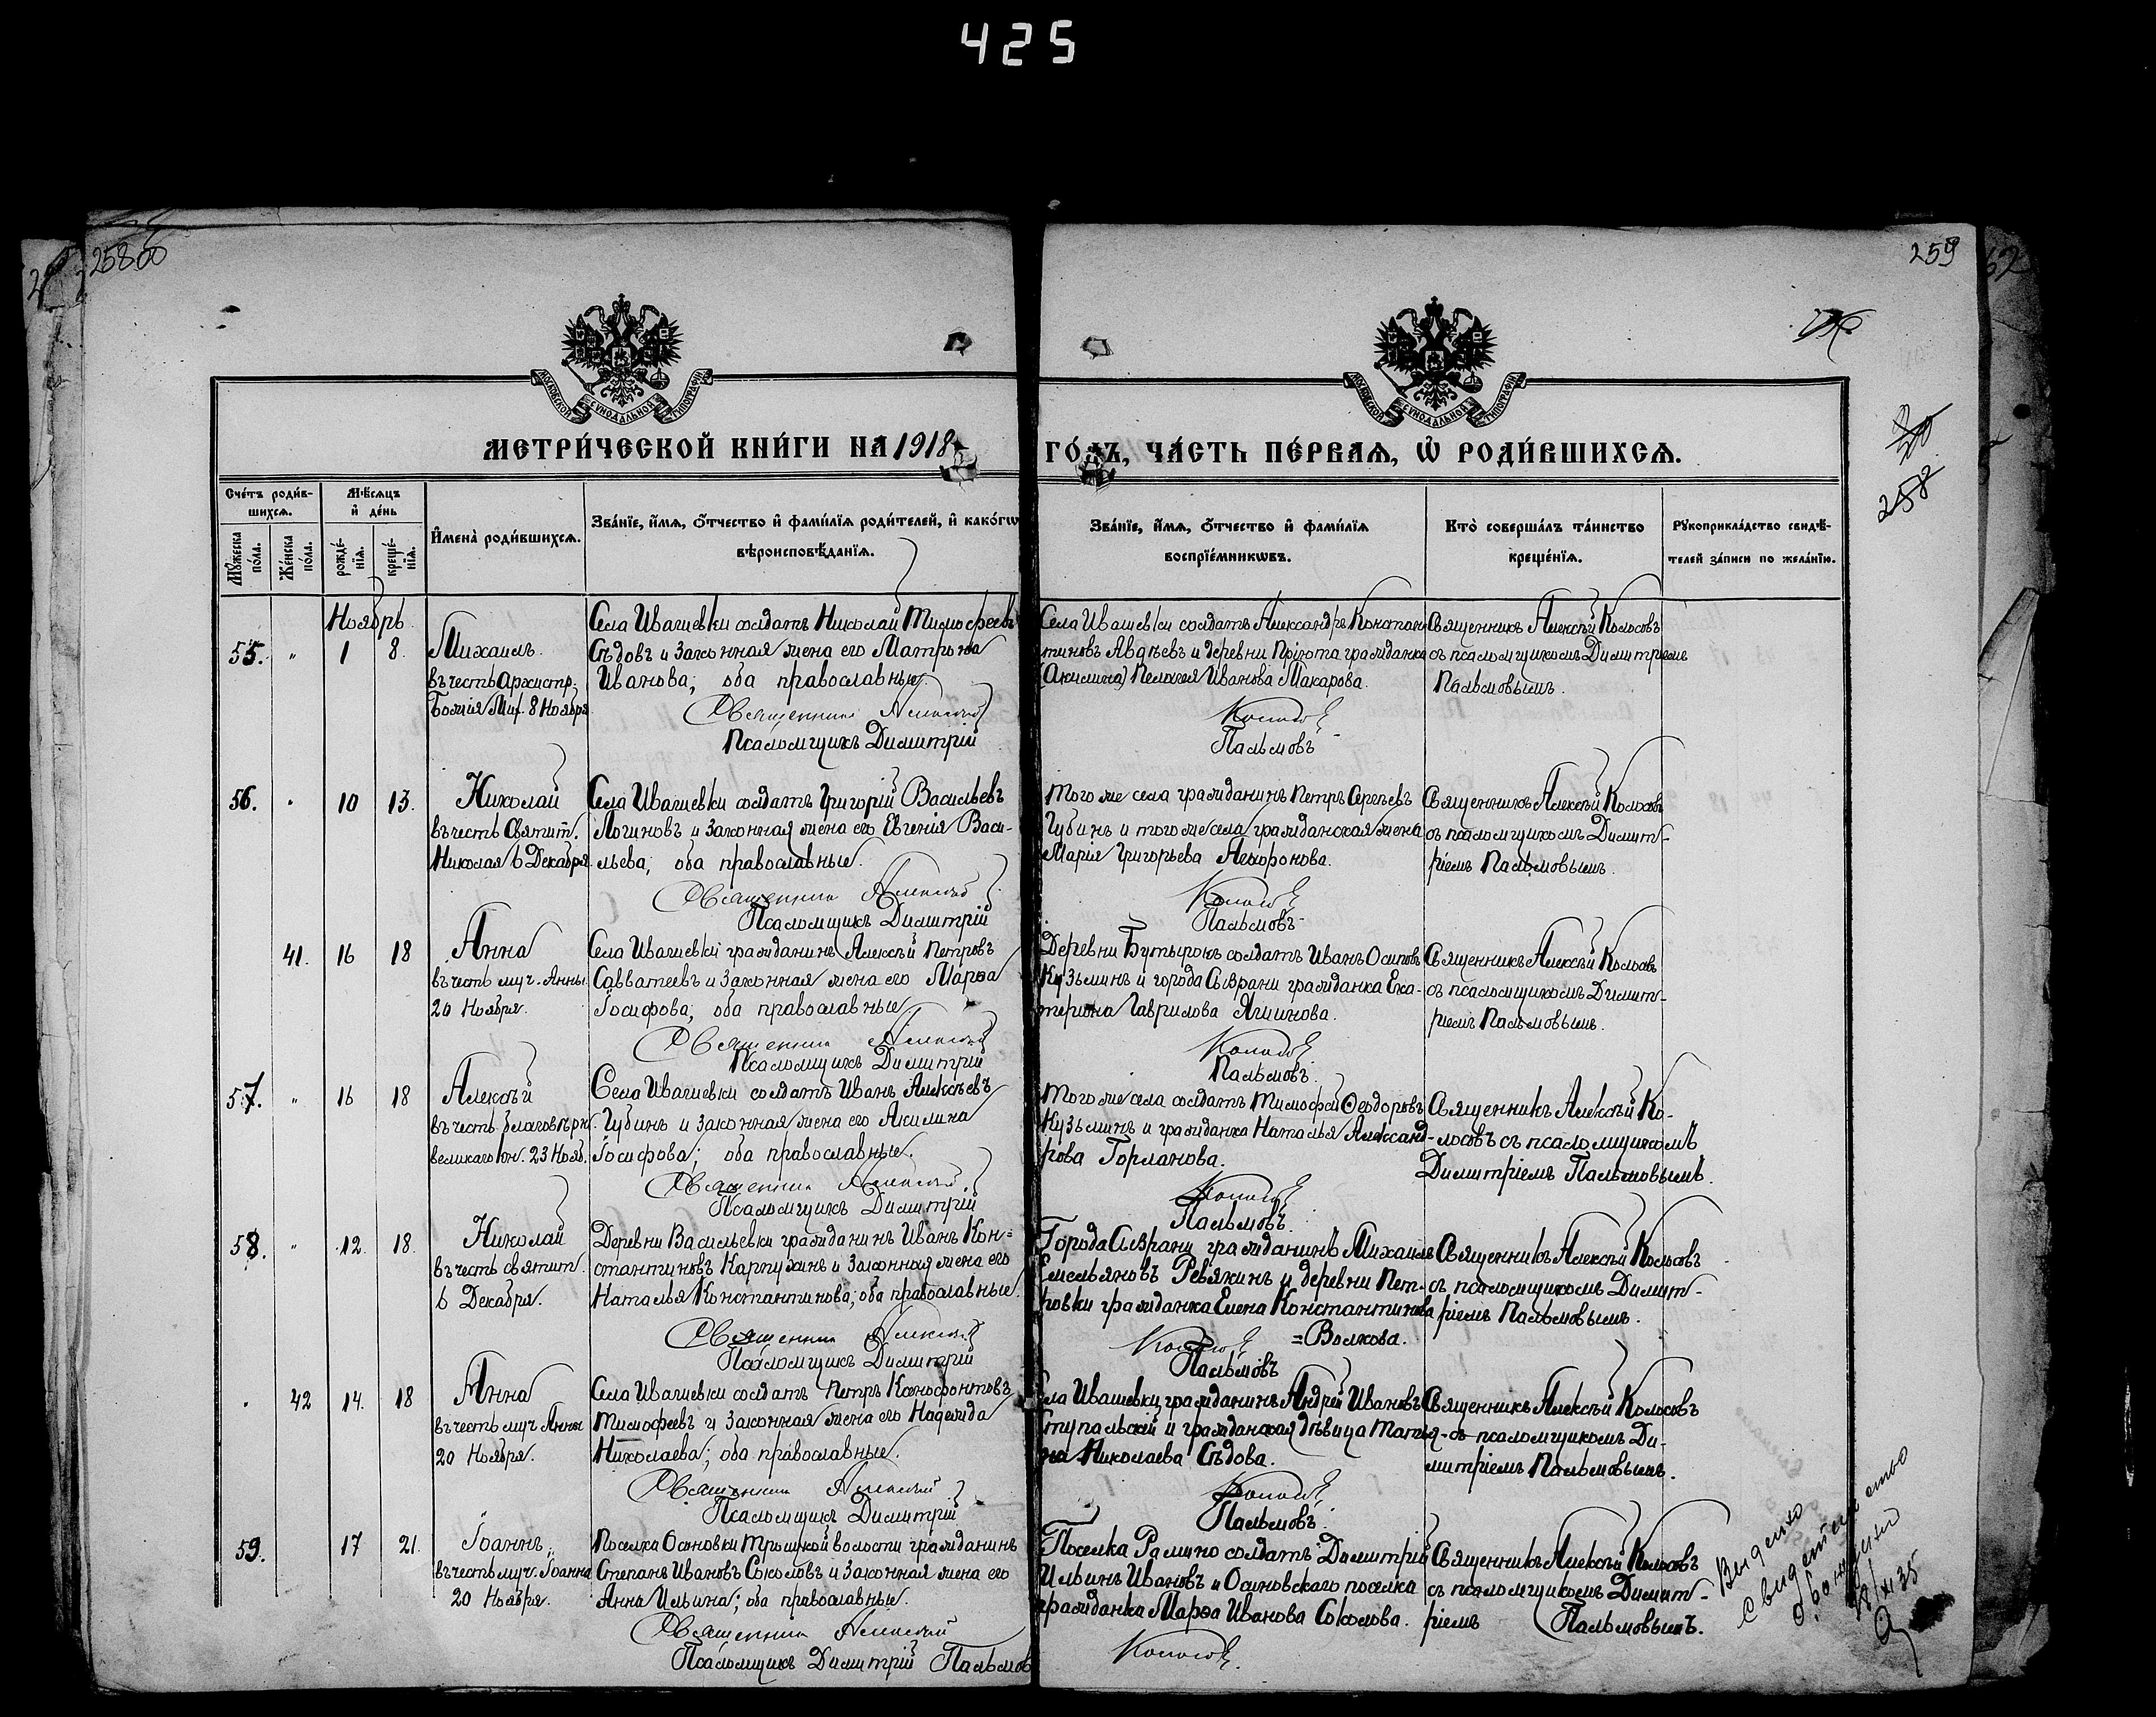 425
258об
259
258
МОСКОВСКОЙ СѴНОДАЛЬНОЙ ТИПОГРАФІИ
МОСКОВСКОЙ СѴНОДАЛЬНОЙ ТИПОГРАФІИ
МЕТРИ́ЧЕСКОЙ КНИ́ГИ НА 1918 ГО́ДЪ, ЧА́СТЬ ПЕ́РВАѦ, Ѡ РОДИ́ВШИХСѦ.
Сче́тъ роди́в-
шихсѧ.
Мѣ́сѧцъ
и де́нь
Мꙋ́жеска по́ла.
Же́нска по́ла.
рожде́-
нїѧ.
креще́-
нїѧ.
И҆мена̀ роди́вшихсѧ.
Зва́нїе, и҆́мѧ, ѻ҆́тчество и҆ фами́лїѧ роди́телей, и҆ како́гѡ
вѣроисповѣ́данїѧ.
Зва́нїе, и҆́мѧ, ѻ҆́тчество и҆ фами́лїѧ
воспрїе́мникѡвъ.
Кто̀ соверша́лъ та́инство
креще́нїѧ.
Рꙋкоприкла́дство свидѣ́-
телей за́писи по жела́нїю.
Ноябрь
55. " 1 8. Михаилъ.
въ честь Архистр.
Божія Мих. 8 Ноября
Села Ивашевки солдатъ Николай Тимофеевъ
Сѣдовъ и законная жена его Матрона
Иванова; оба православные.
Священникъ Алексей
Псаломщикъ Димитрій
Села Ивашевки солдатъ Александръ Констан-
тиновъ Авдѣевъ и деревни Пріюта гражданка
(Акилина) Пелагея Иванова Макарова.
Колосовъ
Пальмовъ
Священникъ Алексѣй Колосовъ
съ псаломщикомъ Димитріемъ
Пальмовымъ.
56. " 10 13. Николай
въ честь Святит.
Николая 6 Декабря.
Села Ивашевки солдатъ Григорій Васильевъ
Логиновъ и законная жена его Евгенія Васи-
льева; оба православные.
Священникъ Алексей
Псаломщикъ Димитрій
Того же села гражданинъ Петръ Сергѣевъ
Губинъ и того же села гражданская жена
Марія Григорьева Агафонова.
Колосовъ
Пальмовъ
Священникъ Алексѣй Колосовъ
съ псаломщикомъ Димит-
ріемъ Пальмовымъ.
41. 16 18 Анна
въ честь муч. Анны
20 Ноября.
Села Ивашевки гражданинъ Алексѣй Петровъ
Савватеевъ и законная жена его Марѳа
Іосифова; оба православные
Священникъ Алексей
Псаломщикъ Димитрій
Деревни Бутырокъ солдатъ Иванъ Осиповъ
Кузьминъ и города Сызрани гражданка Ека-
терина Гаврилова Яшинова.
Колосовъ
Пальмовъ.
Священникъ Алексѣй Колосовъ
съ псаломщикомъ Димит-
ріемъ Пальмовымъ.
57. " 16 18 Алексѣй
въ честь благовѣрн.
великаго кн. 23 Нояб.
Села Ивашевки солдатъ Иванъ Алексѣевъ
Губинъ и законная жена его Акилина
Іосифова; оба православные.
Священникъ Алексей
Псаломщикъ Димитрій
Того же села солдатъ Тимофей Ѳеодоровъ
Кузьминъ и гражданка Наталья Александ-
рова Горланова.
Колосовъ
Пальмовъ.
Священникъ Алексѣй Ко-
лосовъ съ псаломщикомъ
Димитріемъ Пальмовымъ.
58. " 12. 18. Николай
въ честь святит.
6 Декабря.
Деревни Васильевки гражданинъ Иванъ Кон-
стантиновъ Карпухинъ и законная жена его
Наталья Константинова; оба православные.
Священникъ Алексей
Псаломщикъ Димитрій
Города Сызрани гражданинъ Михаилъ
Емельяновъ Ревякинъ и деревни Пет-
ровки гражданка Елена Константинова
=Волкова.
Колосовъ
Пальмовъ
Священникъ Алексѣй Колосовъ
съ псаломщикомъ Димит-
ріемъ Пальмовымъ.
42 14. 18 Анна
въ честь муч Анны
20 Ноября.
Села Ивашевки солдатъ Петръ Ксенофонтовъ
Тимофеевъ и законная жена его Надежда
Николаева; оба православные.
Священникъ Алексей
Псаломщикъ Димитрій
Села Ивашевки гражданинъ Андрей Ивановъ
Ступальскій и гражданская дѣвица Татья-
на Николаева Сѣдова.
Колосовъ
Пальмовъ.
Священникъ Алексѣй Колосовъ
съ псаломщикомъ Ди-
митріемъ Пальмовымъ.
59. 17 21. Іоаннъ,
въ честь муч. Іоанна
20 Ноября.
Поселка Осиновки Троицкой волости гражданинъ
Степанъ Ивановъ Соколовъ и законная жена его
Анна Ильина; оба православные.
Священникъ Алексей
Псаломщикъ Димитрій Пальмов
Поселка Рамино солдатъ Димитрій
Ильинъ Ивановъ и Осиновскаго поселка
гражданка Марѳа Иванова Соколова.
Колосовъ.
Священникъ Алексѣй Колосовъ
съ псаломщикомъ Димит-
ріемъ Пальмовымъ.
Выдено
свидетельство
о рождении